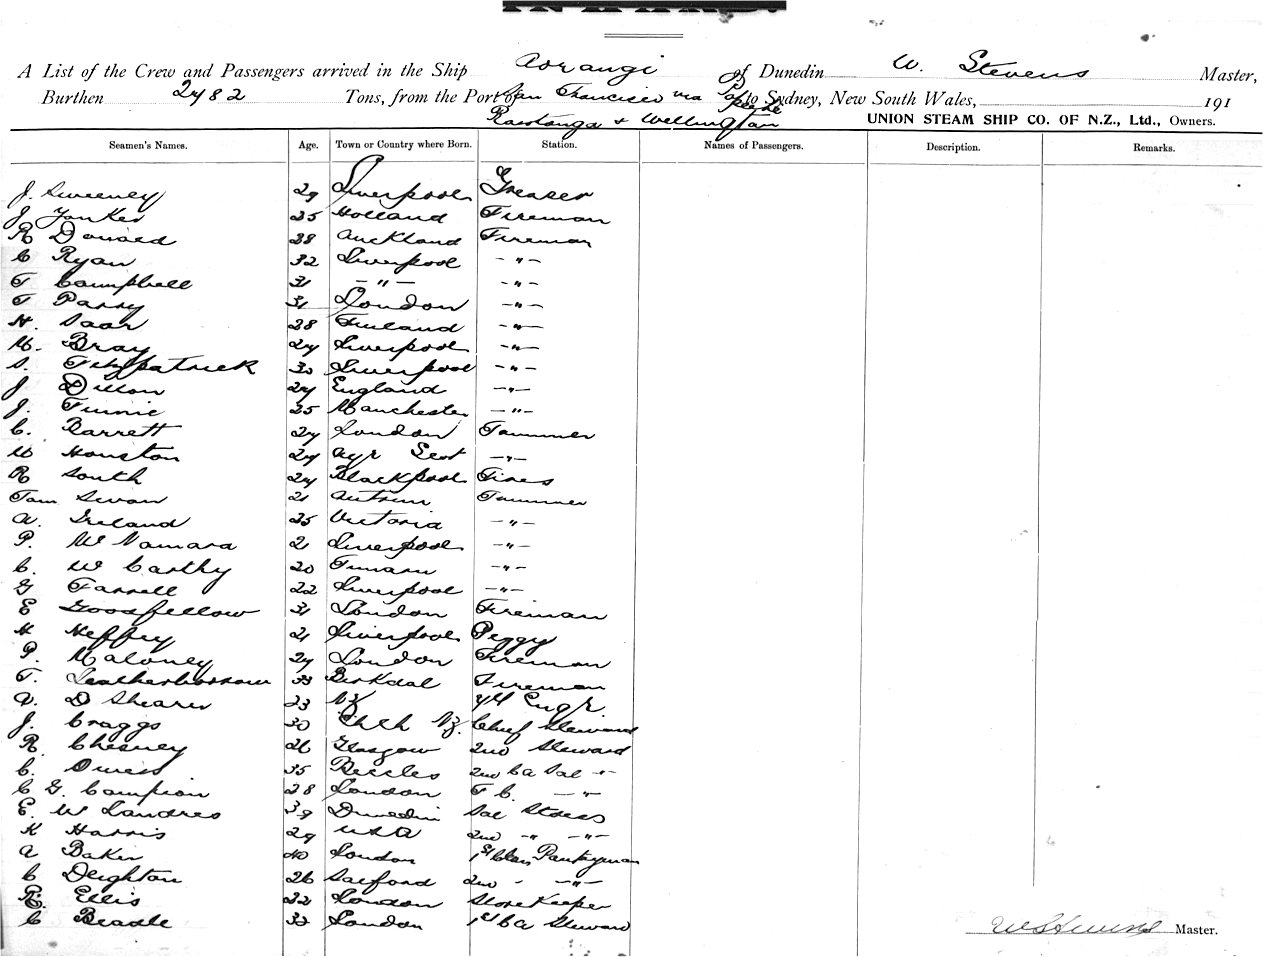 A List of the Crew and Passengers arrived in the Ship Aorangi of Dunedin W. Stevens Master,
Burthen 2482 Tons, from the Port of San Francisco via Papeete to Sydney, New South Wales, 191
Rarotonga & Wellington UNION STEAM SHIP CO. OF N.Z., Ltd., Owners.
Seamen's Names. Age. Town or Country where Born. Station. Names of Passengers. Description. Remarks.
J. Sweeney 29 Liverpool Greaser
J. Yonker 25 Holland Fireman
R Donald 28 Auckland Fireman
C Ryan 32 Liverpool -"-
T Campbell 31 -"- -"-
T Parry 31 London -"-
H. Saar 28 Finland -"-
W. Bray 24 Liverpool -"-
S. Fitzpatrick 30 Liverpool -"-
J Dillon 24 England -"-
J. Finnie 25 Manchester -"-
C. Barrett 24 London Trimmer
W Houston 24 Ayr Scot -"-
R South 24 Blackpool Fires
Tam Sevan 21 Antrim Trimmer
A. Ireland 25 Victoria -"-
P. McNamara 21 Liverpool -"-
C. McCarthy 20 Timaru -"-
G Farrell 22 Liverpool -"-
E Goodfellow 31 London Fireman
H Heffey 21 Liverpool Peggy
P. Maloney 24 London Fireman
T. Leatherbarrow 33 Birkdal Fireman
A. D Shearer 23 NZ 4th Engr.
J. Craggs 30 Chch NZ. Chief Steward
R. Chesney 26 Glasgow 2nd Steward
C. Owers 35 Beccles 2nd Ca Sal -"-
C G. Campion 28 London F C. -"-
E. W Landres 39 Dunedin Sal Stores
K Harris 29 USA 2nd -"- -"-
A Baker 40 London 1st Class Pantryman
C Deighton 26 Salford 2nd " -"-
R. Ellis 22 London Storekeeper
C Beadle 32 London 1st Ca Steward
W Stevens Master.